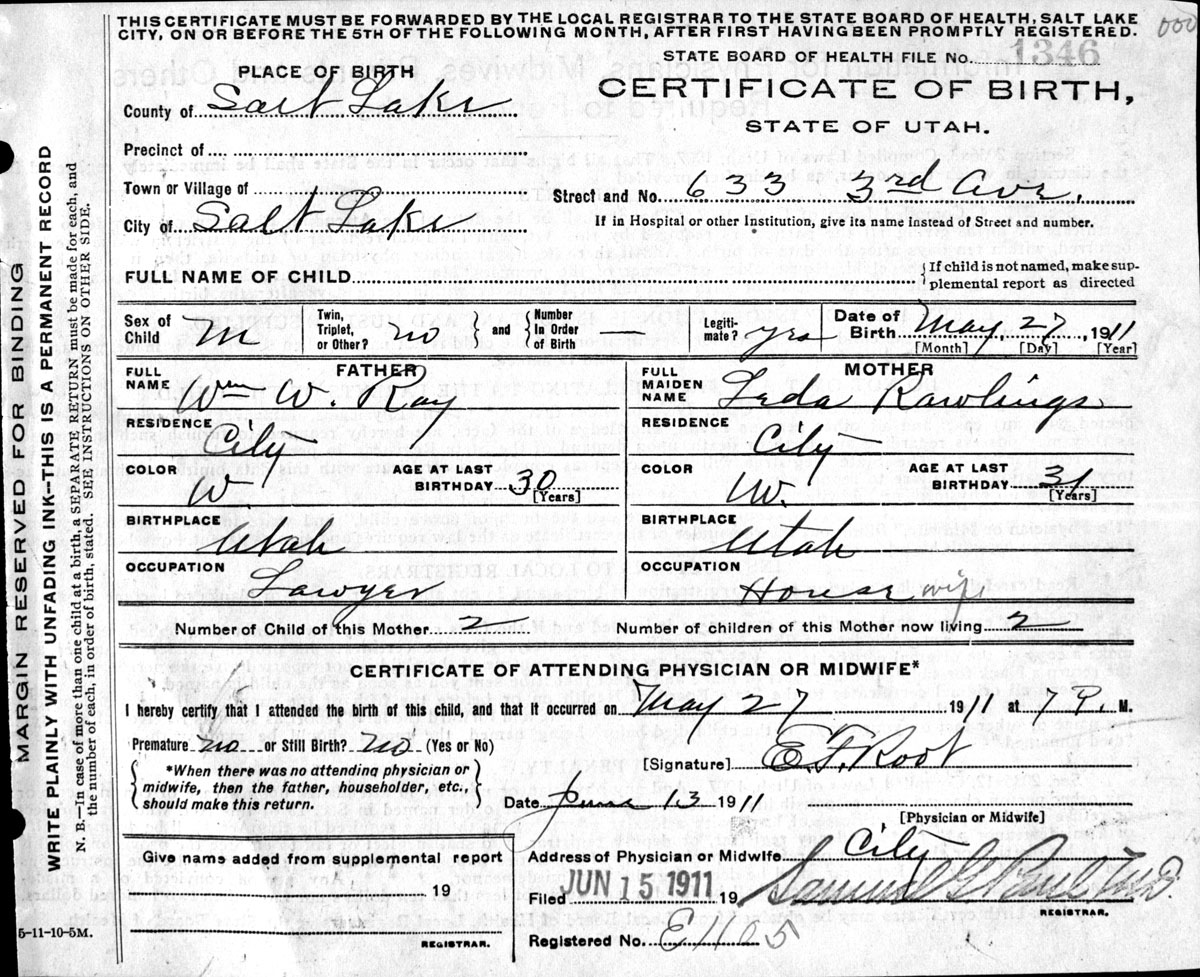 THIS CERTIFICATE MUST BE FORWARDED BY THE LOCAL REGISTRAR TO THE STATE BOARD OF HEALTH, SALT LAKE
CITY, ON OR BEFORE THE 5TH OF THE FOLLOWING MONTH, AFTER FIRST HAVING BEEN PROMPTLY REGISTERED.
000
STATE BOARD OF HEALTH FILE No. 1346
PLACE OF BIRTH
CERTIFICATE OF BIRTH,
STATE OF UTAH.
County of Salt Lake
Precinct of
Town or Village of
Street and No. 633 3rd Ave.
City of Salt Lake
If in Hospital or other Institution, give its name instead of Street and number.
FULL NAME OF CHILD
If child is not named, make sup-
plemental report as directed
Sex of Child M Twin, Triplet, or Other? no and Number In Order of Birth — Legiti-mate? yes Date of Birth May 27, 1911
[Month] [Day] [Year]
FATHER
FULL NAME Wm W. Ray
RESIDENCE City
COLOR W AGE AT LAST BIRTHDAY 30
[Years]
BIRTHPLACE Utah
OCCUPATION Lawyer
MOTHER
FULL MAIDEN NAME Leda Rawlings
RESIDENCE City
COLOR W. AGE AT LAST BIRTHDAY 31
[Years]
BIRTHPLACE Utah
OCCUPATION House wife
Number of Child of this Mother 2 Number of children of this Mother now living 2
CERTIFICATE OF ATTENDING PHYSICIAN OR MIDWIFE*
I hereby certify that I attended the birth of this child, and that it occurred on May 27 1911 at 7 P. M.
Premature no or Still Birth? no (Yes or No)
[Signature] E. F. Root
*When there was no attending physician or
midwife, then the father, householder, etc.,
should make this return.
Date June 13 1911
[Physician or Midwife]
Give name added from supplemental report
19
REGISTRAR.
Address of Physician or Midwife City
Filed JUN 15 1911 19 Samuel G. Paul M.D.
REGISTRAR.
Registered No. E1105
5-11-10-5M.
MARGIN RESERVED FOR BINDING
WRITE PLAINLY WITH UNFADING INK—THIS IS A PERMANENT RECORD
N. B.—In case of more than one child at a birth, a SEPARATE RETURN must be made for each, and
the number of each, in order of birth, stated. SEE INSTRUCTIONS ON OTHER SIDE.